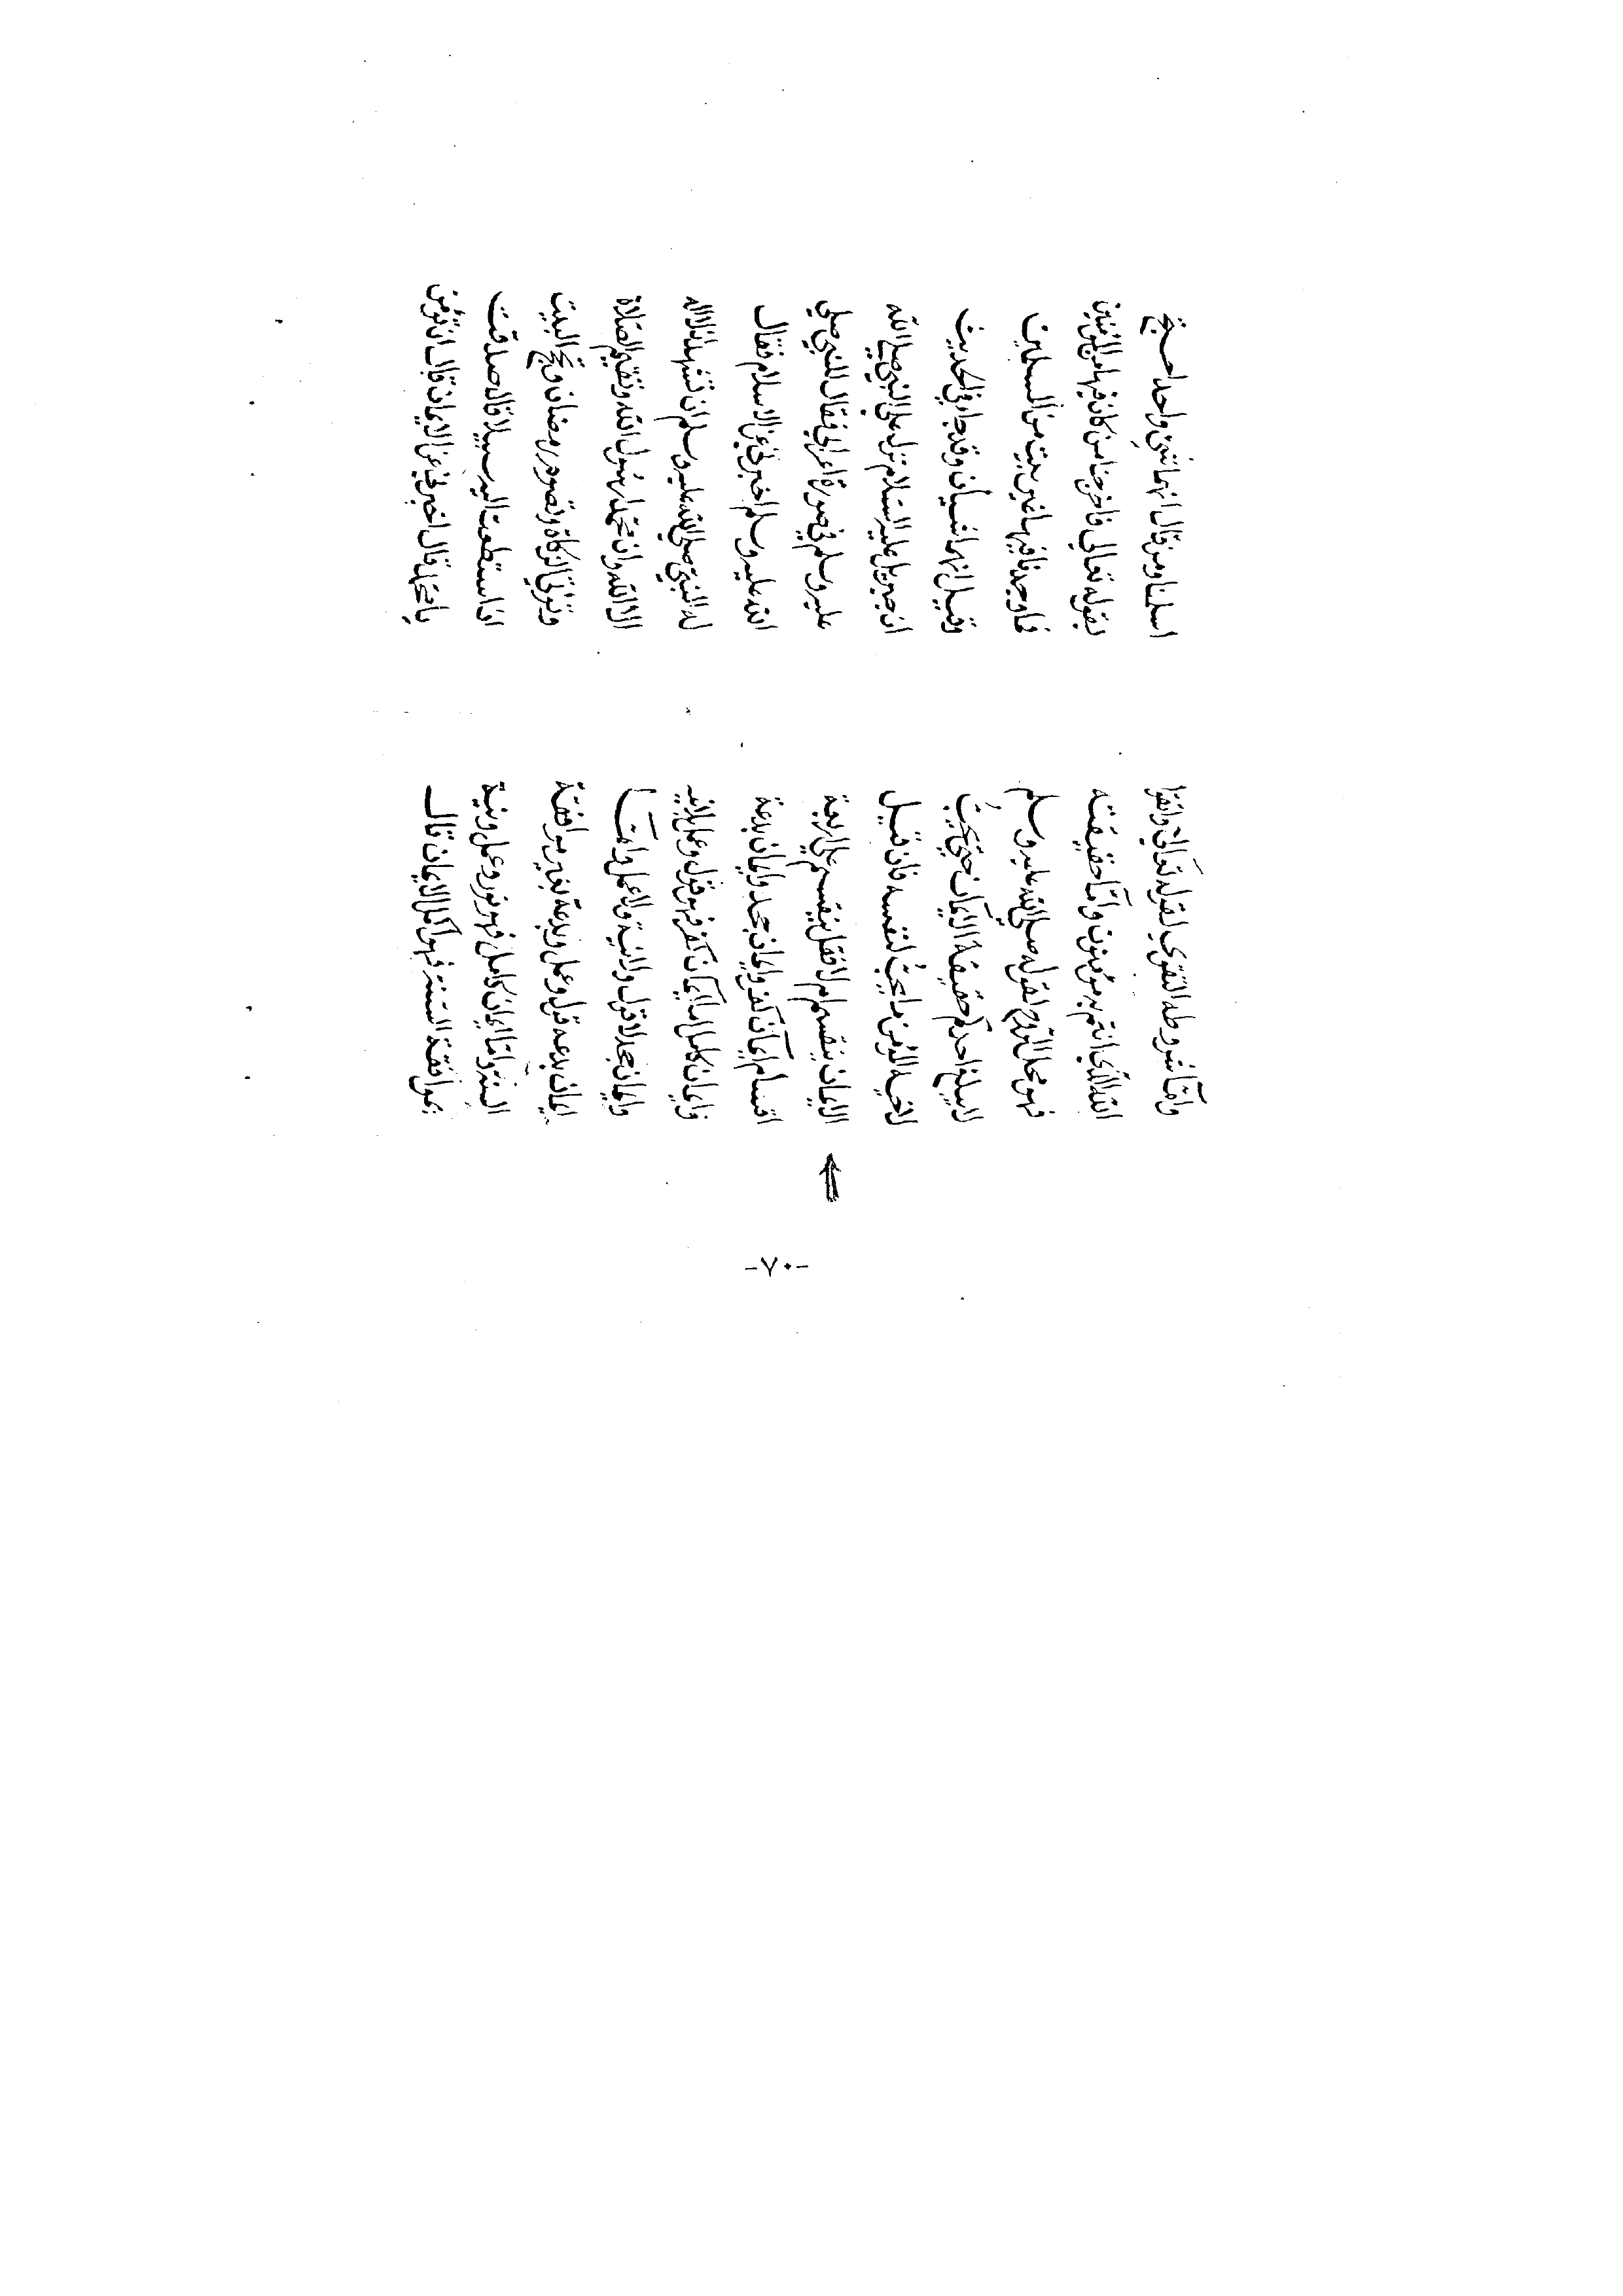 وآمّا شروطه التقوي لقوله تعالي واتقوا
الله الذي انتم به مؤمنون وآمّا حقيقته
فهو محل الروح لقوله صلي الله عليه وسلم
لايبلغ احدكم حقيقة الايمان حتي يحبّ
لاخيه المؤمن ما يحبّ لنفسه فان قيل
الايمان ينقسم ام لا فقل ينقسم علي اربعة
اقسام ايمان كفر وايمان جحد وايمان بدعة
وايمان كامل اما ايمان كفر فهو قول وعمل بلا نية
وايمان جحد لا قول ولا نية ولا عمل وامّا
ايمان بدعه قول وعمل وبدعة بغير موافقة
السنة وامّا ايمان كامل فهو قول وعمل ونية
بموافقة السنة فهو اكمل الايمان قال
اسلمنا ومن قال انهما شئ واحد احتج
بقوله تعالي فاخرجنا من كان فيها من المؤمنين
فما وجدنا فيها غير بيت من المسلمين
وقيل انهما شيان وقد جا في الحديث
ان جبريل عليه السلام نزل علي النبي صلي الله
عليه وسلم في صورة اعرابي فقال للنبي صلي
الله عليه وسلم اخبرني عن الاسلام فقال
له النبي صلي الله عليه وسلم ان تشهد ان لا اله
الا الله وان محمد رسول الله وتقيم الصلاة
وتوتي الزكاة وتصوم رمضان وتحج البيت
اذا استطعت اليه سبيلا قال صدقت
يا محمد قال اخبرني عن الايمان قال ان تؤمن
-٧٠-